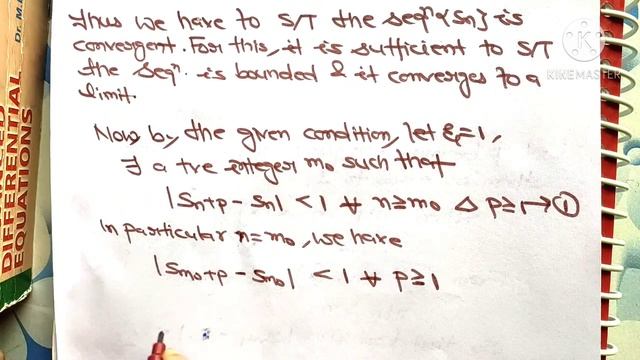 Thus we have to S/T the seqⁿ {Sn} is
convergent. For this, it is sufficient to S/T
the seqⁿ. is bounded & it converges to a
limit.
Now by the given condition, let ε=1,
∃ a +ve integer m₀ such that
|Sn+p - Sn| < 1 ∀ n≥m₀ & p≥1 → ①
In particular n=m₀, we have
|Sm₀+p - Sm₀| < 1 ∀ p≥1
DIFFERENTIAL
EQUATIONS
Dr. M.
KINEMASTER